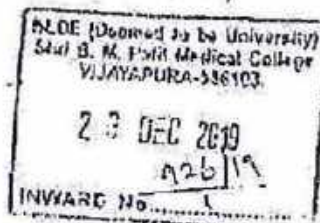 BLDE (Deemed to be University)
Shri B. M. Patil Medical College
VIJAYAPURA-586103.
23 DEC 2019
926/19
INWARD No.